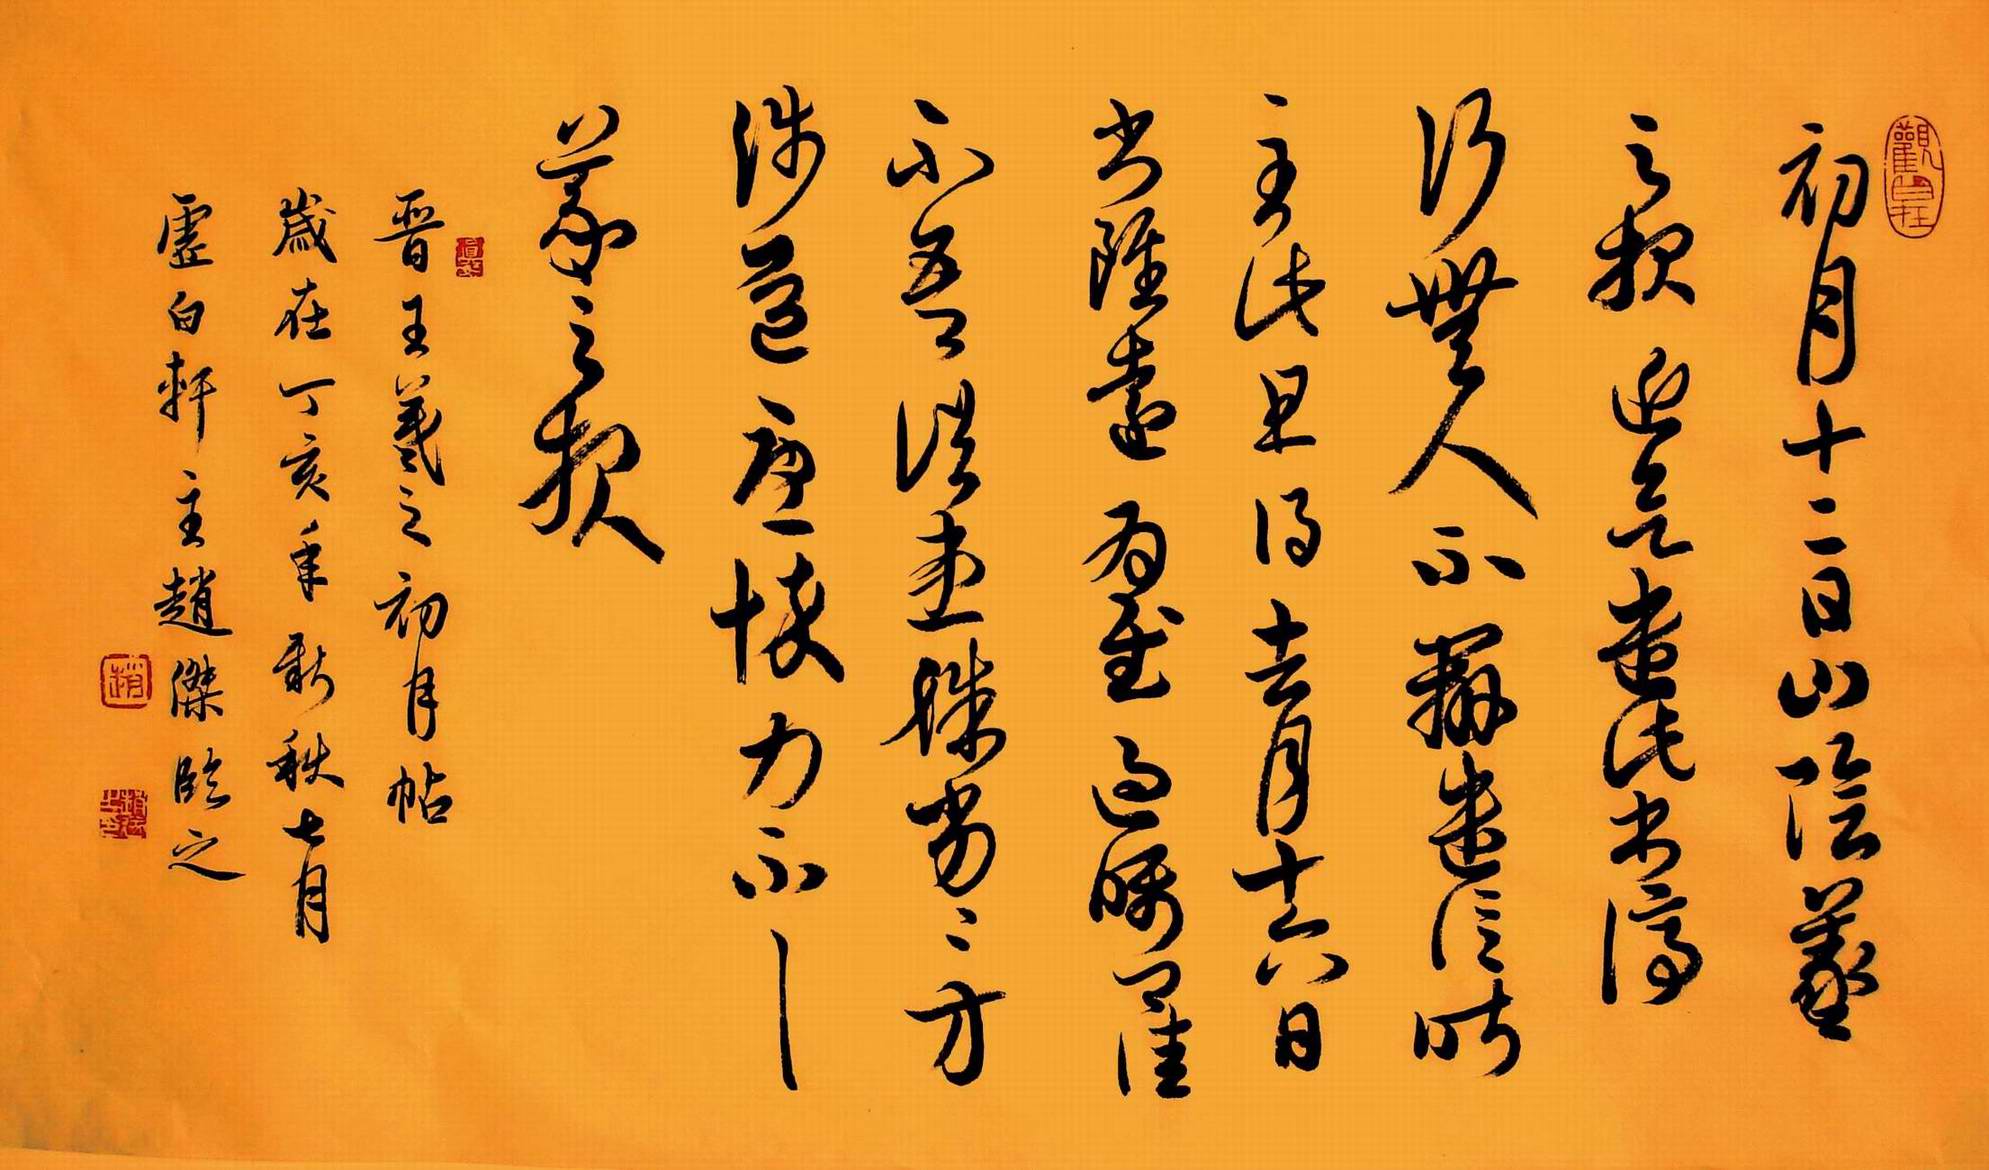 觀自在
初月十二日山陰羲
之報近欲遣此書停
行無人不辦遣信昨
至此且得去月十六日
書雖遠為慰過囑卿佳
不吾諸患殊劣〻方
涉道憂悴力不具
羲之報
晉王羲之初月帖
歲在丁亥年新秋七月
虛白軒主趙傑臨之
趙